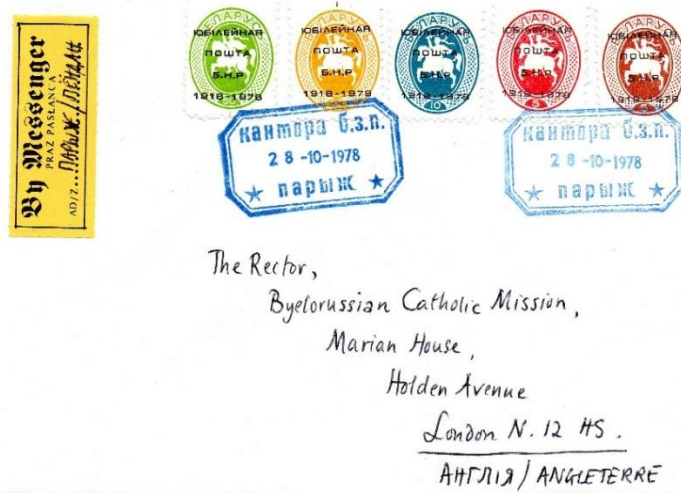 By Messenger
PRAZ PASŁANCA
AD/Z....ПАРЫЖ./ЛЁНДАН
БЕЛАРУСЬ
ЮБІЛЕЙНАЯ
ПОШТА
Б.Н.Р
1918-1978
БЕЛАРУСЬ
ЮБІЛЕЙНАЯ
ПОШТА
Б.Н.Р
1918-1978
БЕЛАРУСЬ
ЮБІЛЕЙНАЯ
ПОШТА
Б.Н.Р
10
1918-1978
БЕЛАРУСЬ
ЮБІЛЕЙНАЯ
ПОШТА
Б.Н.Р
5
1918-1978
БЕЛАРУСЬ
ЮБІЛЕЙНАЯ
ПОШТА
Б.Н.Р
1918-1978
кантора б.з.п.
28-10-1978
★ парыж ★
кантора б.з.п.
28-10-1978
★ парыж ★
The Rector,
Byelorussian Catholic Mission,
Marian House,
Holden Avenue
London N. 12 HS.
АНГЛІЯ/ANGLETERRE